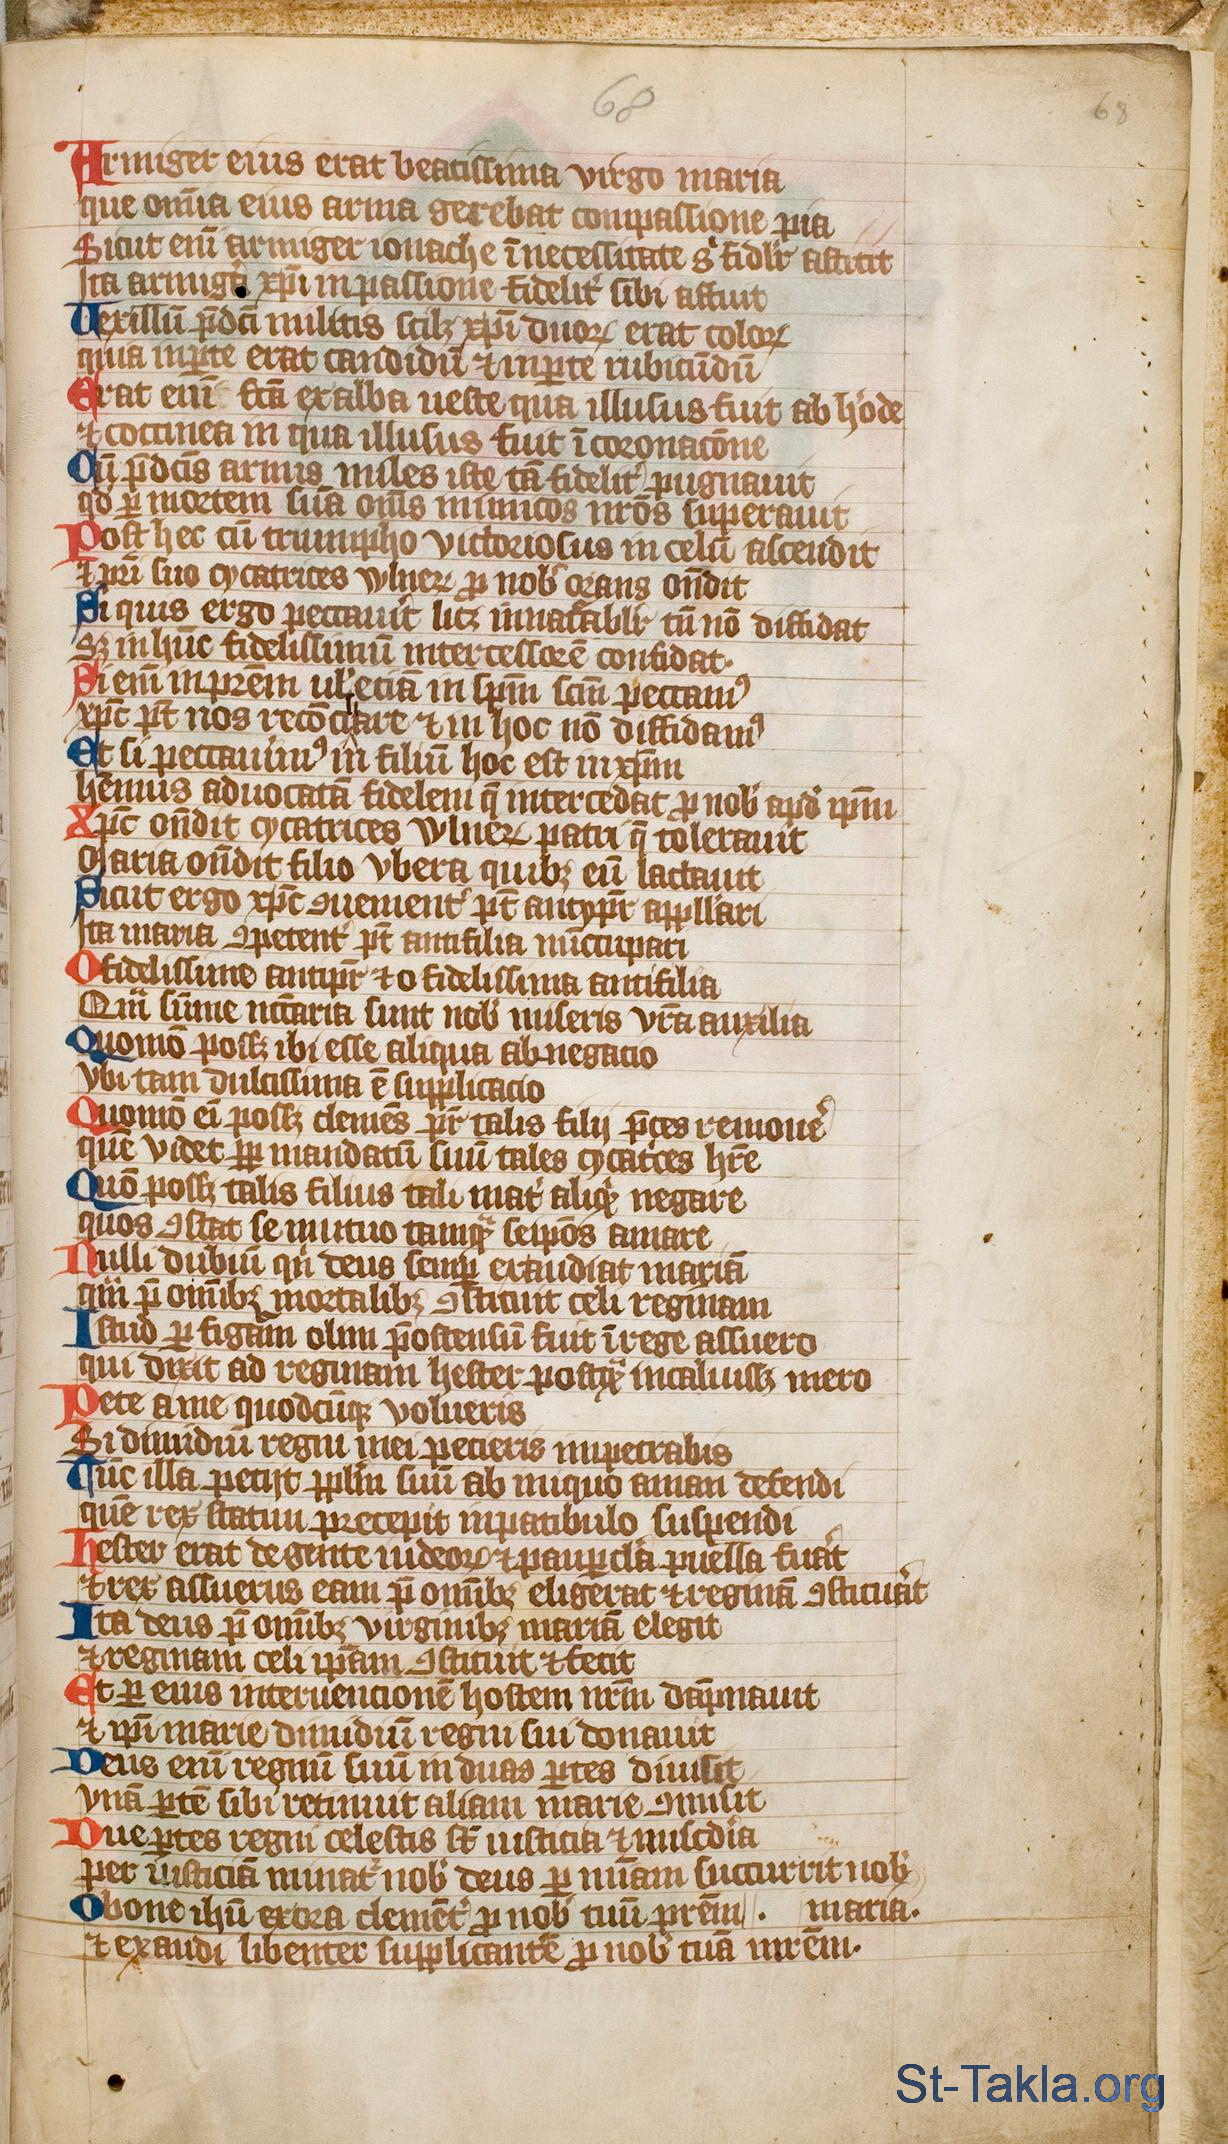 68
68
Armiger eius erat beatissima virgo maria
que om̄ia eius arma gerebat compassione pia
Sicut eni̅ armiger ionathe i̅ necessitate s' fidlr̕ astitit
Ita armig̕ xp̅i in passione fidelit̕ sibi astitit
Uexillu̅ p̅dc̅i militis scilꝫ xp̅i duoꝝ erat coloꝝ
quia in ꝑte erat candidu̅ ⁊ in ꝑte rubicu̅du̅
Erat eni̅ fc̅a ex alba ueste qua illusus fuit ab h'ode
⁊ coccinea in qua illusus fuit i̅ coronaco̅ne
Cu̅ p̅dc̅is armis miles iste ta̅ fidelit̕ pugnauit
qd̕ ꝑ mortem sua̅ om̅s inimicos nr̅os superauit
Post hec cu̅ triumpho victoriosus in celu̅ ascendit
⁊ pr̅i suo cycatrices vlneꝝ ꝓ nob̕ orans on̅dit
Si quis ergo peccauit licꝫ innu̅ablr̕ tn̅ no̅ diffidat
Sꝫ in hu̅c fidelissimu̅ intercessore̅ confidat·
Si eni̅ in pr̅em ul̕ ecia̅ in sp̅m sc̅m peccamꝰ
xp̅c pt̅ nos reco̅ciliare ⁊ in hoc no̅ diffidamꝰ
Et si peccauimꝰ in filiu̅ hoc est in xp̅m
hem̅us aduocata̅ fidelem q̅ intercedat ꝓ nob̕ apd̕ ip̅m
Xp̅c on̅dit cycatrices vlneꝝ patri q̅ tolerauit
Maria on̅dit filio vbera quibꝫ eu̅ lactauit
Sicut ergo xp̅c ꝯuenient̕ pt̅ antypr̅ appll'ari
Ita maria ꝯpetent̕ pt̅ antifilia nu̅cupari
O fidelissime antipr̅ ⁊ o fidelissima antifilia
Qm̅ su̅me nc̅c̅aria sunt nob̕ miseris vr̅a auxilia
Quomo̅ possꝫ ibi esse aliqua abnegatio
vbi tam dulcissima e̅ supplicacio
Quomo̅ ei̅ possꝫ cleme̅s pr̅ talis filij p̅ces remoue̕
que̅ videt ꝓp̕ mandatu̅ suu̅ tales cycat̕ces hr̅e
Quo̅ possꝫ talis filius tali mat̕ aliqͥ negare
quos ꝯstat se mutuo tamqͣ seip̅os amare
Nulli dubiu̅ qn̕ deus semp̕ exaudiat maria̅
qm̅ p̅ om̅ibꝫ mortalibꝫ ꝯstituit celi reginam
Istud ꝑ figam̅ olim p̅ostensu̅ fuit i̅ rege assuero
qui dixit ad reginam hester postqͣ incaluissꝫ mero
Pete a me quodcu̅qꝫ volueris
Si dimidiu̅ regni mei pecieris impetrabis
Tu̅c illa petijt ppl̅m suu̅ ab iniquo aman defendi
que̅ rex statim precepit in patibulo suspendi
Hester erat de gente iudeoꝝ ⁊ paup̕cl̅a puella fuat̕
⁊ rex assuerus eam p̅ om̅ibꝫ eligerat ⁊ regina̅ ꝯstituat̕
Ita deus p̅ om̅ibꝫ virginibꝫ maria̅ elegit
⁊ reginam celi ip̅am ꝯstituit ⁊ fecit
Et ꝑ eius interuencione̅ hostem nr̅m da̅pnauit
⁊ ip̅i marie dimidiu̅ regni sui donauit
Deus eni̅ regnu̅ suu̅ in duas ꝑtes diuisit
vna̅ ꝑte̅ sibi retinuit aliam marie ꝯmisit
Due ꝑtes regni celestis st̕ iusticia ⁊ misc̅dia
per iusticia̅ minat̕ nob̕ deus ꝑ mi̅am succurrit nob̕
O bone ih̅u exora cleme̅t̕ ꝓ nob̕ tuu̅ pr̅em · maria·
⁊ exaudi libenter supplicante̅ ꝓ nob̕ tua̅ mr̅em·
St-Takla.org